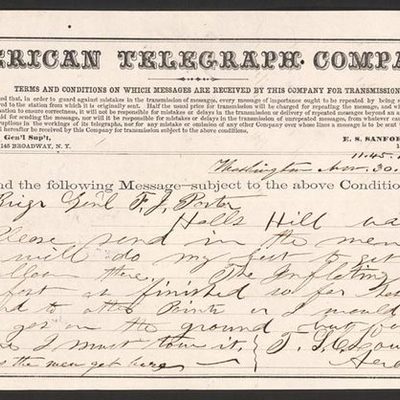 ERICAN TELEGRAPH COMPA
TERMS AND CONDITIONS ON WHICH MESSAGES ARE RECEIVED BY THIS COMPANY FOR TRANSMISSION
ed that, in order to guard against mistakes in the transmission of messages, every message of importance ought to be repeated by being s
ed to the station from which it is originally sent. Half the usual price for transmission will be charged for repeating the message, and wh
ution to ensure correctness, it will not be responsible for mistakes or delays in the transmission or delivery of repeated messages beyond an a
id for sending the message, nor will it be responsible for mistakes or delays in the transmission of unrepeated messages, from whatever cau
ruptions in the workings of its telegraphs, nor for any mistake or omission of any other Company over whose lines a message is to be sent t
d hereafter be received by this Company for transmission subject to the above conditions.
Gen'l Sup't,
E. S. SANFOR
145 BROADWAY, N. Y.
11.45
Washington Nov. 30
nd the following Message subject to the above Conditio
Brig Genl F. J. Porter
Halls Hill va
Please send in the men
will do my best to get
there. The Inflating
at finished so far
to other Points or I would
gas on the ground but
I must tow it. T. S. C. Low
the men get here Aer